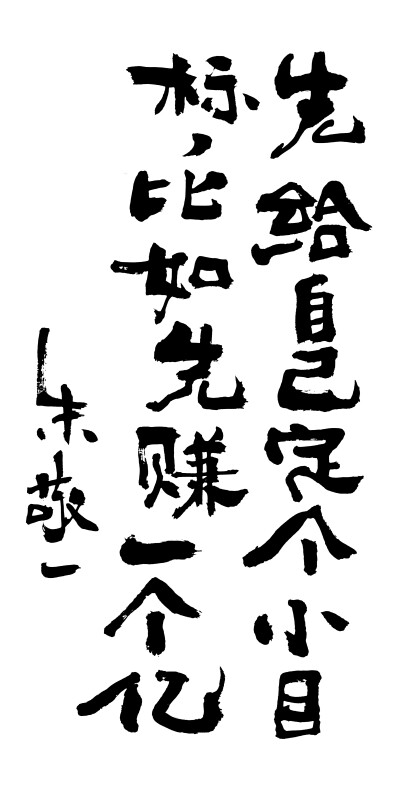 先给自己定个小目
标，比如先赚一个亿
朱敬一